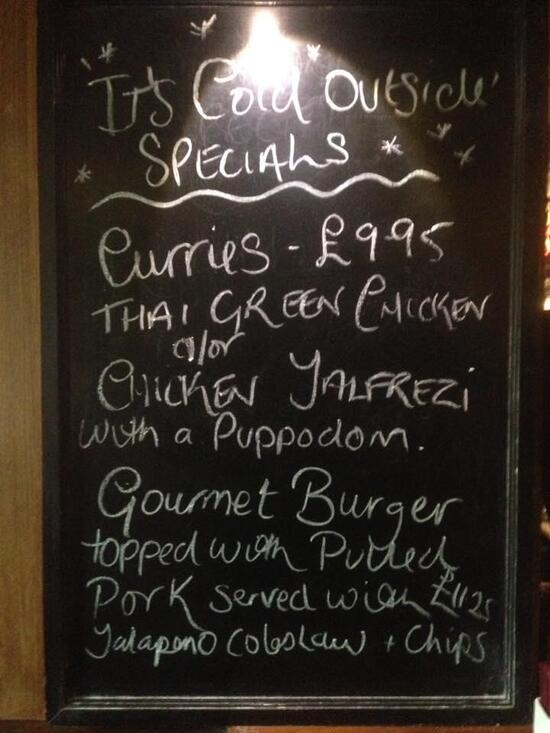 It's Cold Outside'
SPECIALS
Curries - £9.95
THAI GREEN CHICKEN
a/or
CHICKEN JALFREZI
with a Puppodom.
Gourmet Burger
topped with Pulled
Pork served with £11.25
Jalapeno Coleslaw + Chips